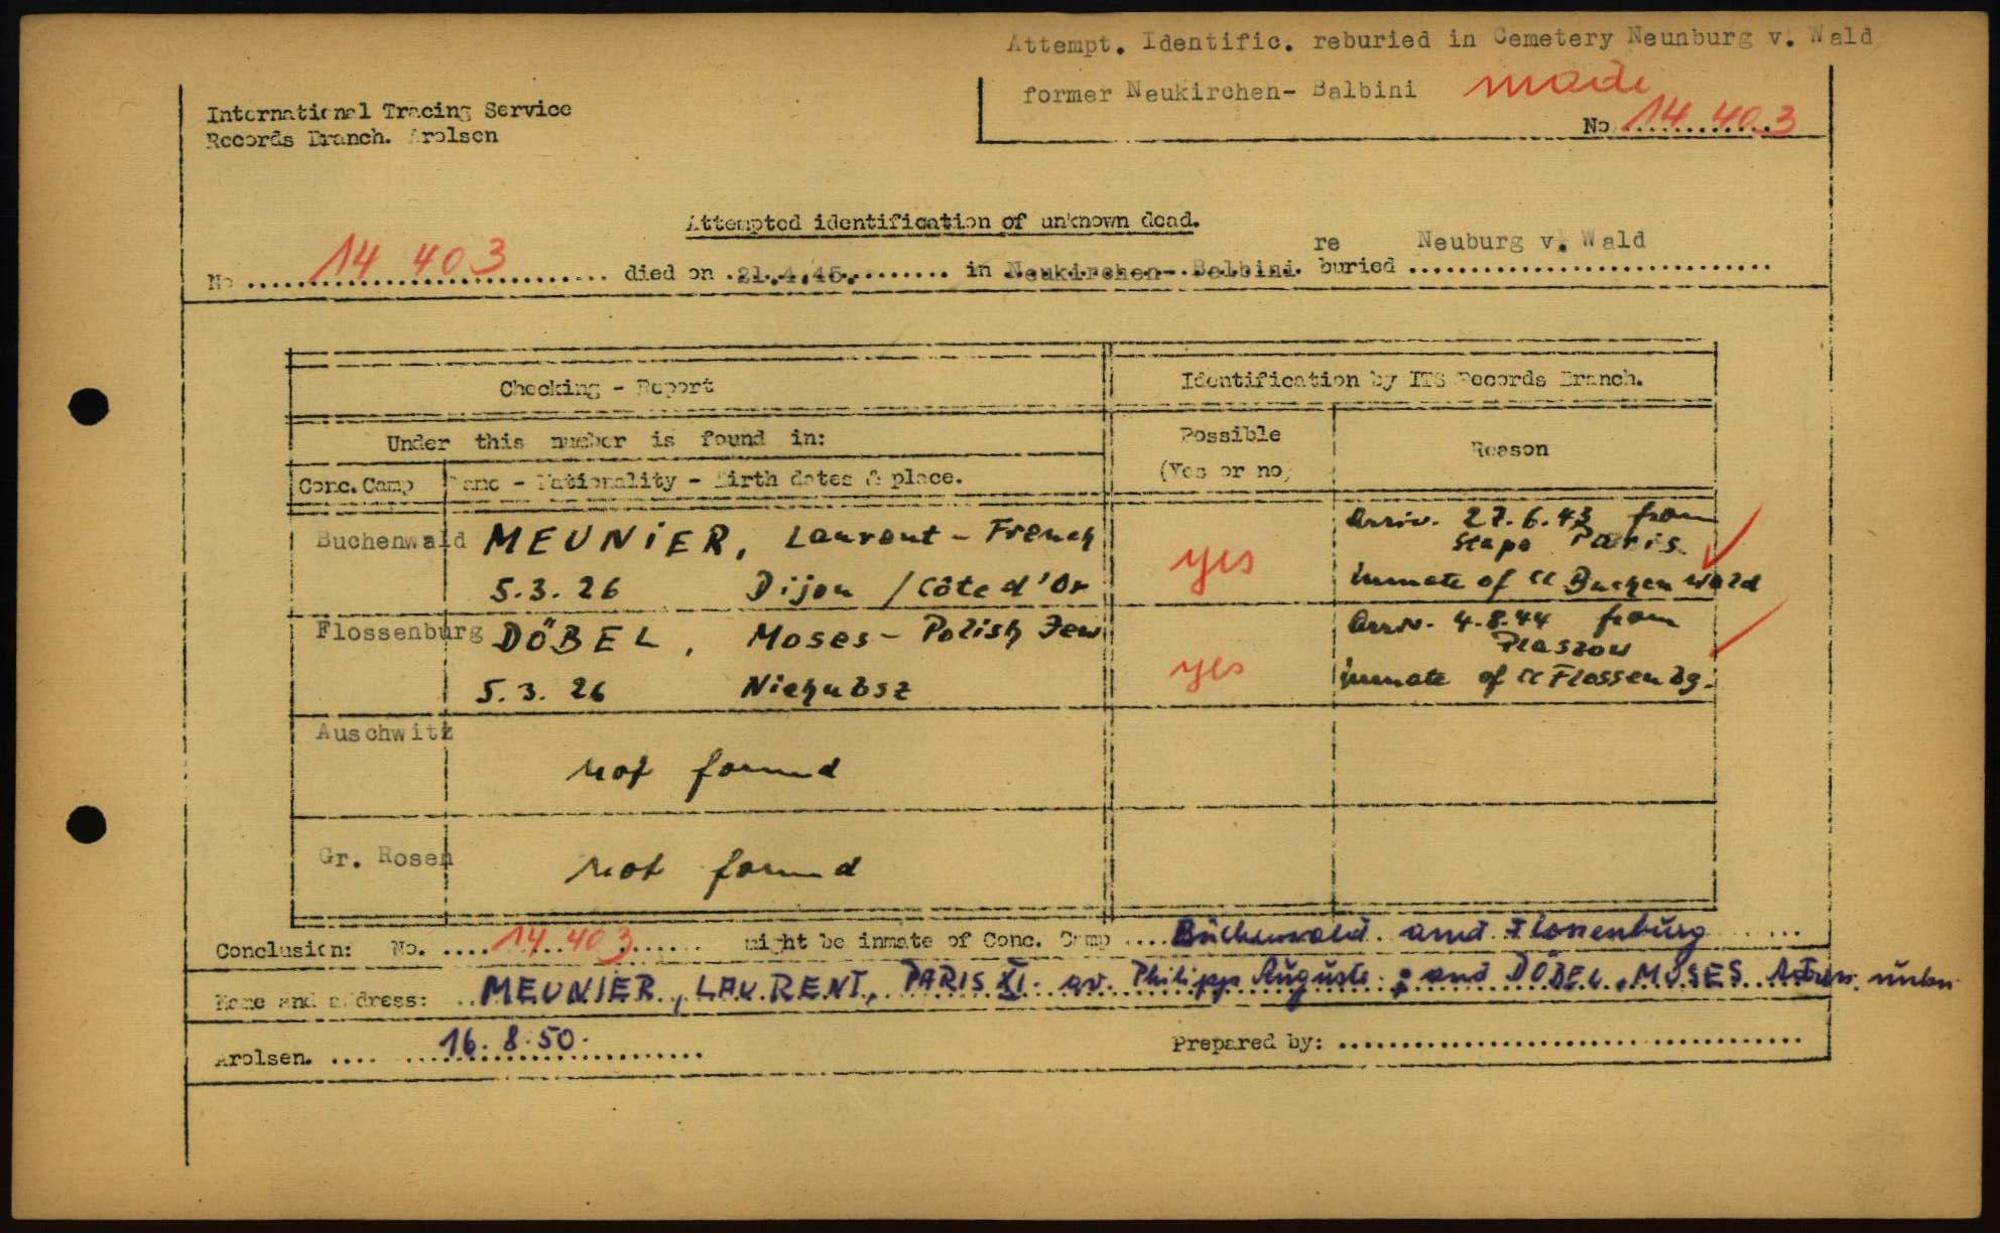 Attempt. Identific. reburied in Cemetery Neunburg v. Wald
former Neukirchen- Balbini made
No. 14 403
International Tracing Service
Records Branch. Arolsen
Attempted identification of unknown dead.
re Neuburg v. Wald
No 14 403 died on 21.4.45. in Neukirchen- Balbini. buried
Checking - Report
Identification by ITS Records Branch.
Under this number is found in:
Possible
(Yes or no)
Reason
Conc. Camp
Name - Nationality - Birth dates & place.
Buchenwald MEUNIER, Laurent - French
5.3.26 Dijon / Côte d'Or
yes
Arriv. 27.6.43 from
Stapo Paris
inmate of CC Buchenwald
Flossenburg DÖBEL, Moses - Polish Jew
5.3.26 Niehubsz
yes
Arriv. 4.8.44 from
Plaszow
inmate of CC Flossenbg.
Auschwitz
not found
Gr. Rosen
not found
Conclusion: No. 14 403 might be inmate of Conc. Camp Buchenwald and Flossenburg
Name and address: MEUNIER, LAURENT, PARIS XI. av. Philipp Auguste ; and DÖBEL, MOSES Adress. unkn
Arolsen. 16. 8. 50.
Prepared by: